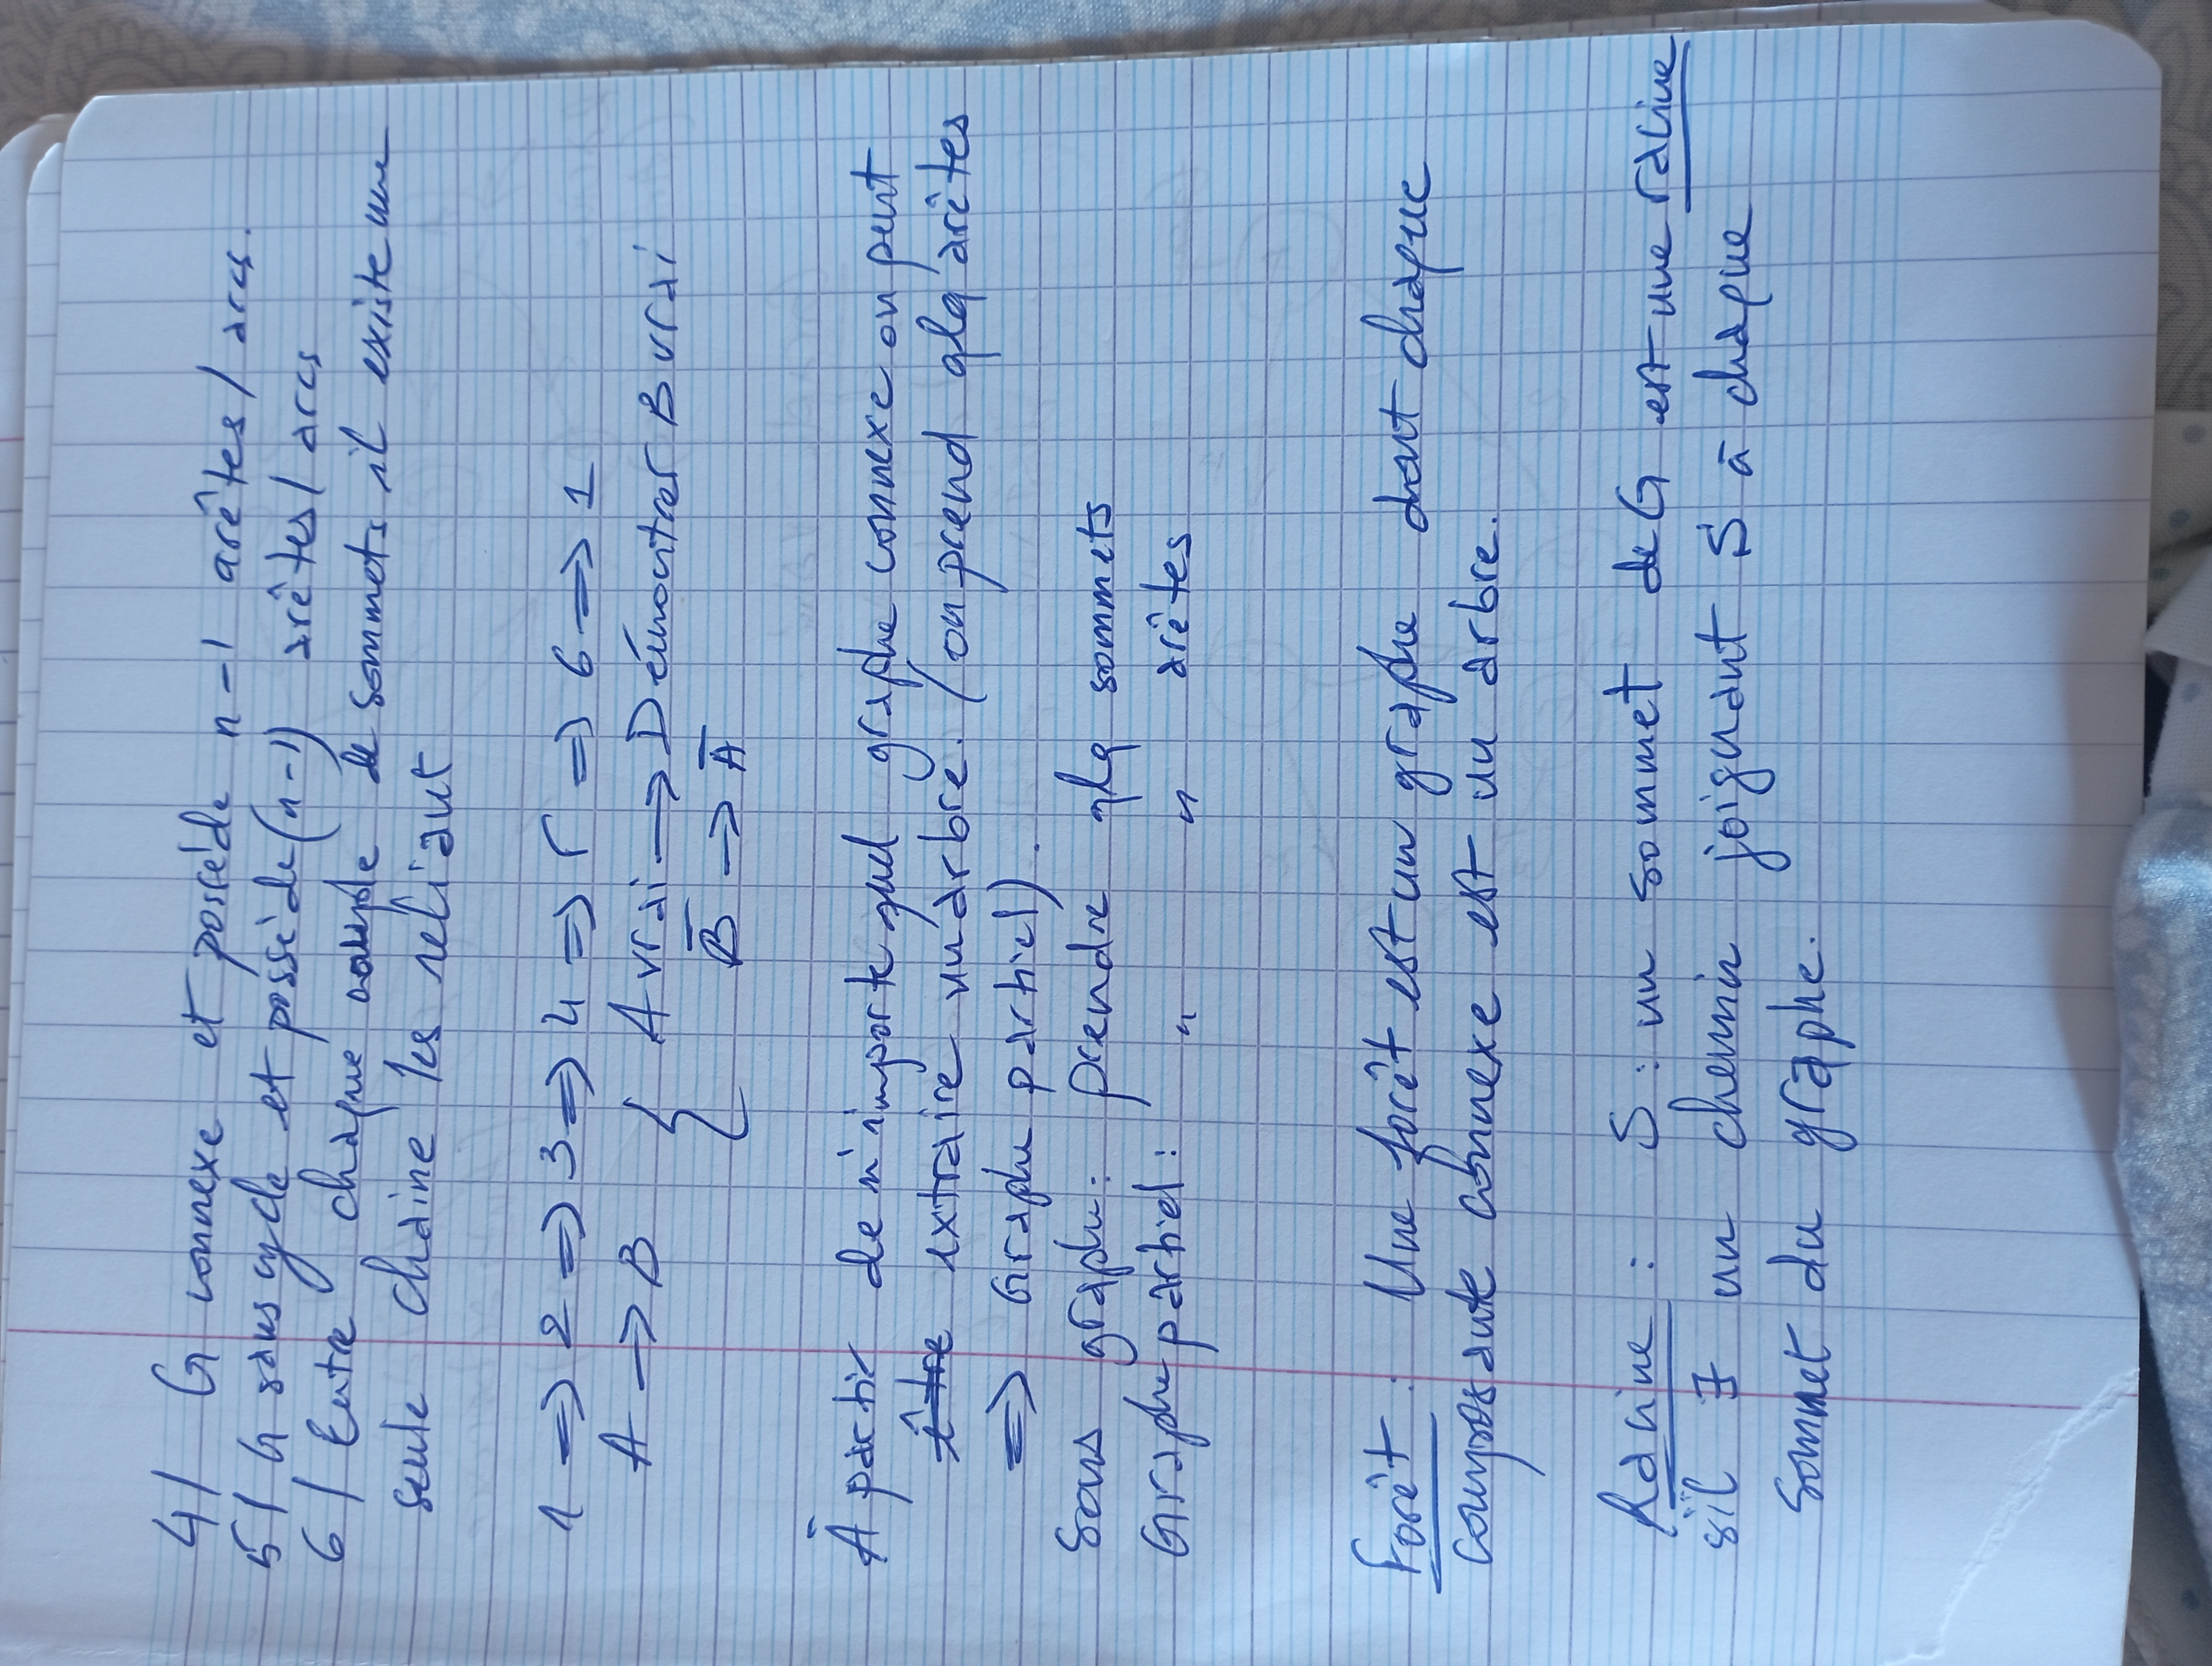 4/ G connexe et possède n-1 arêtes/arcs.
5/ G sans cycle et possède (n-1) arêtes/arcs
6/ Entre chaque couple de sommets il existe une
seule chaîne les reliant
1 => 2 => 3 => 4 => 5 => 6 -> 1
A -> B { A vrai -> Démontrer B vrai
{ B̄ -> Ā
À partir de n'importe quel graphe connexe on peut
extraire un arbre. (on prend qlq arêtes
=> Graphe partiel).
Sous graphe : prendre qlq sommets
Graphe partiel : " " arêtes
Forêt : Une forêt est un graphe dont chaque
composante connexe est un arbre.
Racine : S : un sommet de G est une racine
s'il ∃ un chemin joignant S à chaque
sommet du graphe.